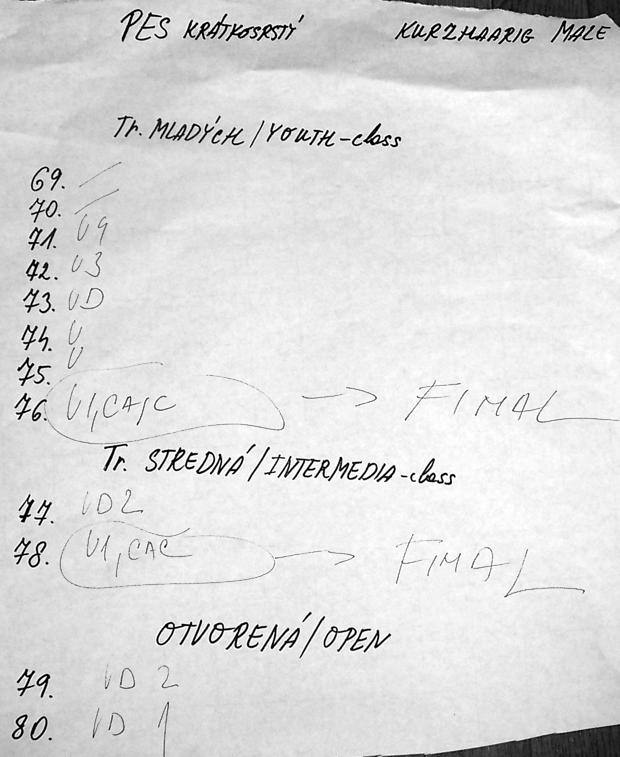 PES KRÁTKOSRSTÝ KURZHAARIG MALE
Tr. MLADÝCH / YOUTH-class
69. —
70. —
71. V4
72. V3
73. VD
74. V
75. V
76. V1, CAJC → FINAL
Tr. STREDNÁ / INTERMEDIA-class
77. VD2
78. V1, CAC → FINAL
OTVORENÁ / OPEN
79. VD 2
80. VD 1